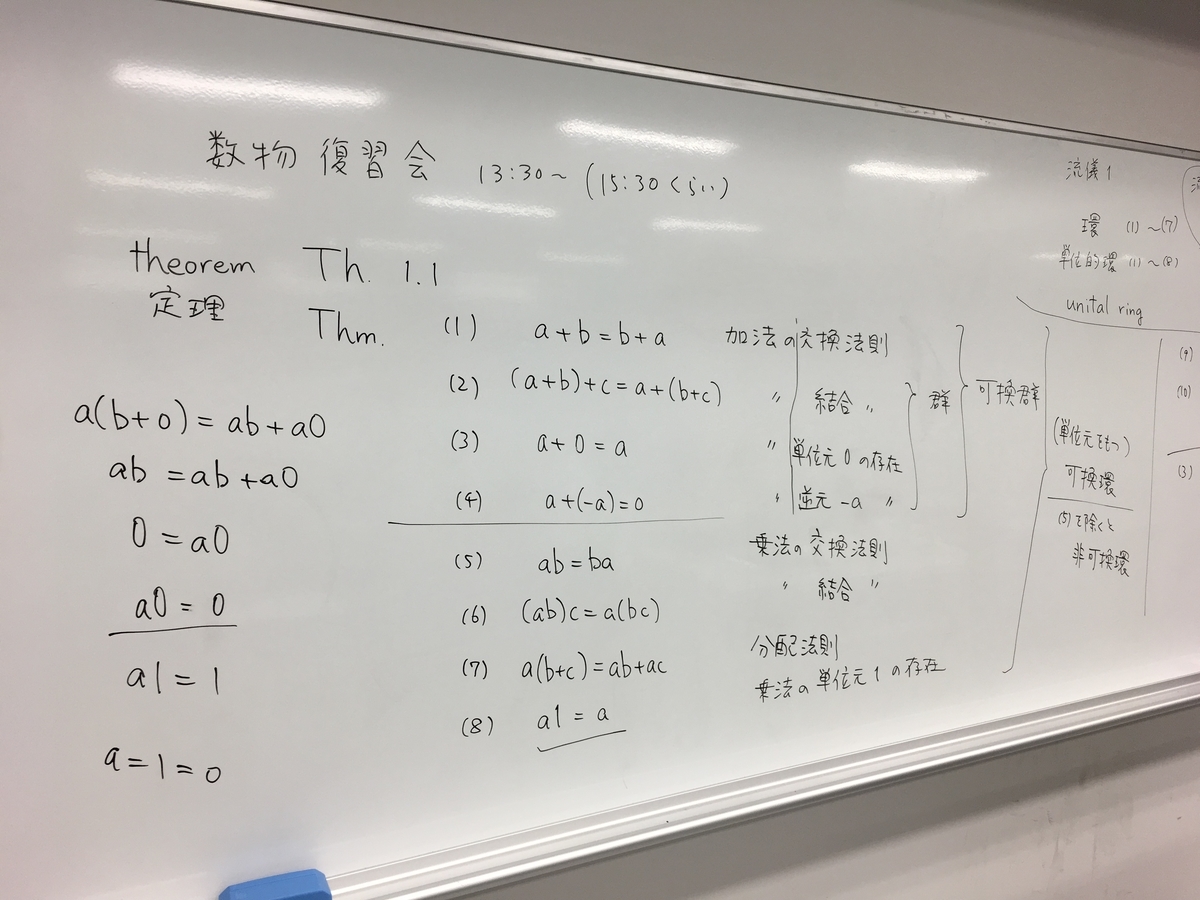 数物 復習会 13:30～ (15:30くらい)
theorem Th. 1.1
定理 Thm.
a(b+0) = ab+a0
ab = ab+a0
0 = a0
a0 = 0
a1 = 1
a=1=0
(1) a+b=b+a 加法の交換法則
(2) (a+b)+c=a+(b+c) 〃 結合 〃
(3) a+0=a 〃 単位元0の存在
(4) a+(-a)=0 〃 逆元 -a 〃
(5) ab=ba 乗法の交換法則
(6) (ab)c=a(bc) 〃 結合 〃
(7) a(b+c)=ab+ac 分配法則
(8) a1=a 乗法の単位元1の存在
群
可換群
(単位元をもつ)
可換環
(5)を除くと
非可換環
流儀1
環 (1)～(7)
単位的環 (1)～(8)
unital ring
(9)
(10)
(3)